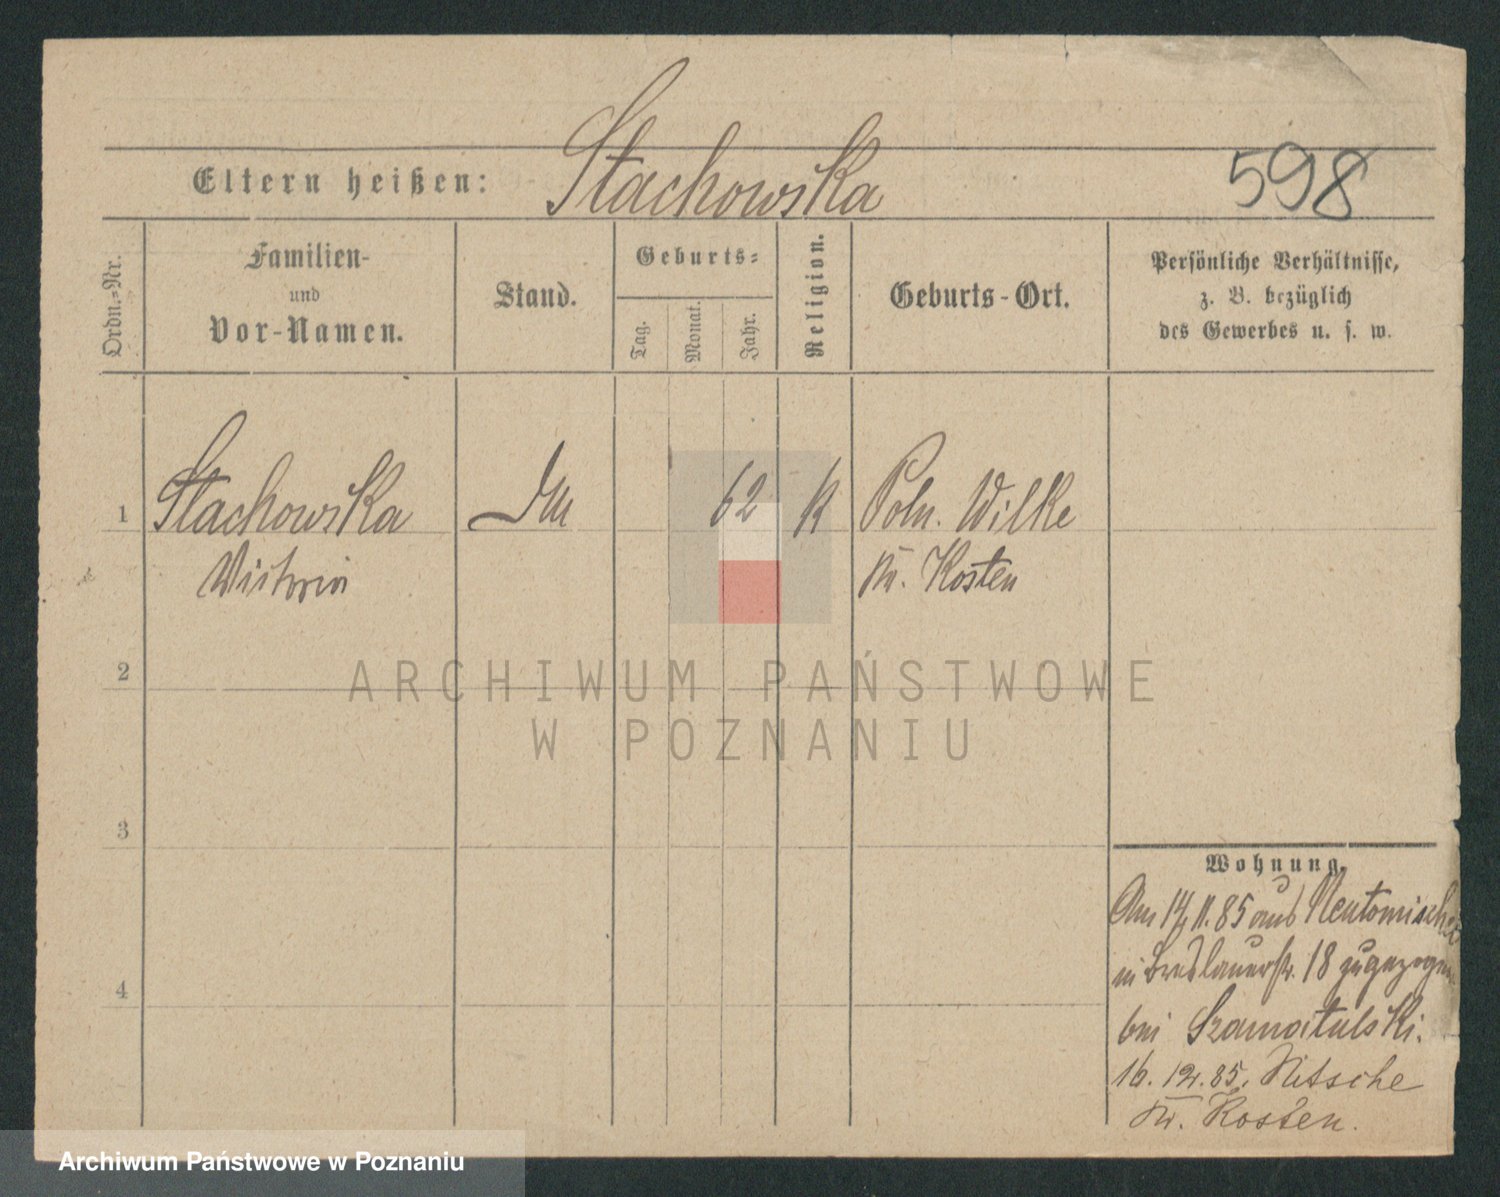 Stachowska
Eltern heißen:
598
Ordn.-Nr.
Familien-
und
Vor-Namen.
Stand.
Geburts-
Tag.
Monat.
Jahr.
Religion.
Geburts-Ort.
Persönliche Verhältnisse,
z. B. bezüglich
des Gewerbes u. s. w.
1 Stachowska 62 k Poln. Wilke
Victoria Kr. Kosten
2
ARCHIWUM PAŃSTWOWE
W POZNANIU
3
4
Wohnung.
Am 14/11.85 aus Neutomischel
in Breslauerstr. 18 zugezogen
bei Szamatulski.
16. 12. 85. Nitsche
Kr. Kosten.
Archiwum Państwowe w Poznaniu